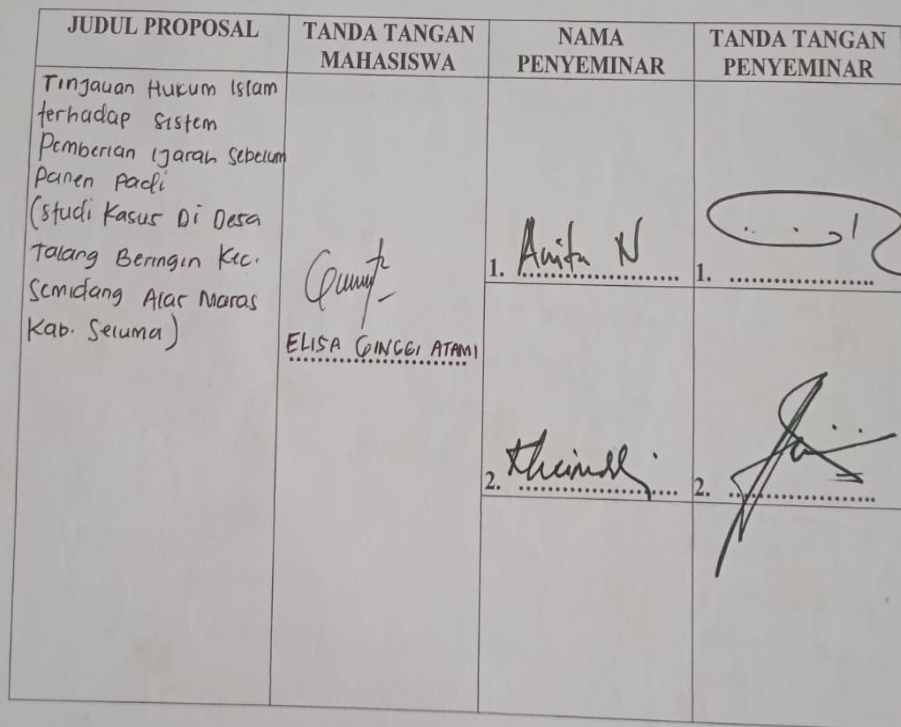 JUDUL PROPOSAL
TANDA TANGAN
MAHASISWA
NAMA
PENYEMINAR
TANDA TANGAN
PENYEMINAR
Tinjauan Hukum Islam
terhadap sistem
Pemberian Ijarah Sebelum
Panen Padi
(Studi Kasus Di Desa
Talang Beringin Kec.
Semidang Alas Maras
Kab. Seluma)
ELISA GINGGI ATAMI
1. Anita N
1.
2.
2.